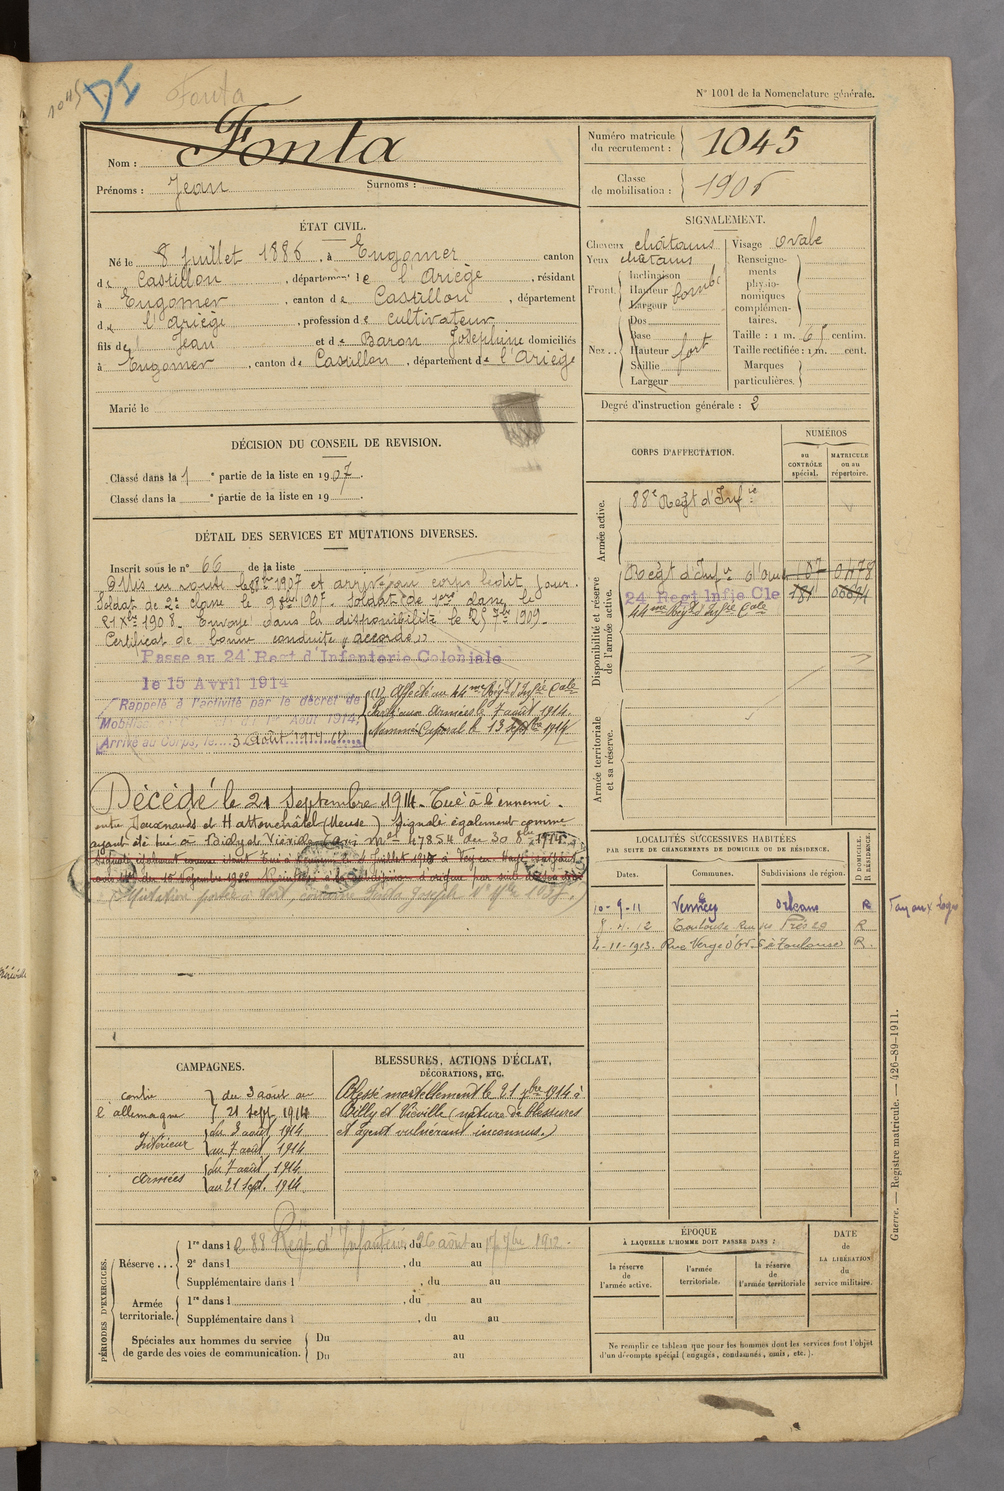 1045 DI Fonta
N° 1001 de la Nomenclature générale.
Nom : Fonta
Prénoms : Jean Surnoms :
Numéro matricule du recrutement : 1045
Classe de mobilisation : 1906
ÉTAT CIVIL.
Né le 8 Juillet 1886, à Engomer canton
de Castillon, département de l'Ariège, résidant
à Engomer, canton de Castillon, département
de l'Ariège, profession de cultivateur
fils de Jean et de Baron Joséphine domiciliés
à Engomer, canton de Castillon, département de l'Ariège
Marié le
SIGNALEMENT.
Cheveux châtains Visage Ovale
Yeux châtains
Front. Inclinaison
Hauteur bombé
Largeur
Nez.. Dos
Base
Hauteur fort
Saillie
Largeur
Renseignements physionomiques complémentaires.
Taille : 1 m. 65 centim.
Taille rectifiée : 1 m. cent.
Marques particulières.
Degré d'instruction générale : 2
DÉCISION DU CONSEIL DE REVISION.
Classé dans la 1e partie de la liste en 1907.
Classé dans la e partie de la liste en 19
DÉTAIL DES SERVICES ET MUTATIONS DIVERSES.
Inscrit sous le n° 66 de la liste
Mis en route le 8 8bre 1907 et arrivé au corps ledit jour.
Soldat de 2e classe le 9 8bre 1907. Soldat de 1ere classe le
21 Xbre 1908. Envoyé dans la disponibilité le 25 7bre 1909.
Certificat de bonne conduite "accordé"
Passé au 24 Regt d'Infanterie Coloniale
le 15 Avril 1914
Rappelé à l'activité par le décret de
Mobilisation du 1er Août 1914.
Arrivé au Corps, le 3 Août 1914 (1)
(1) Affecté au 44me Régt d'Infie Cale
Parti aux Armées le 7 août 1914.
Nommé Caporal le 13 Septbre 1914
Décédé le 21 Septembre 1914. Tué à l'ennemi.
entre Deuxnouds et Hattonchâtel (Meuse) signalé également comme
ayant été tué à Billy et Viéville avis ml 47854 du 30 8bre 1915
(Mutation portée à tort, concerne Fonta Joseph N° Mle 1037.)
CORPS D'AFFECTATION.
NUMÉROS
au CONTRÔLE spécial.
MATRICULE ou au répertoire.
Armée active.
88e Regt d'Infie
Disponibilité et réserve de l'armée active.
Regt d'Infie d'Auch 187 0478
24 Regt Infie Cle 181
44me Régt d'Infie Cale
Armée territoriale et sa réserve.
LOCALITÉS SUCCESSIVES HABITÉES
PAR SUITE DE CHANGEMENTS DE DOMICILE OU DE RÉSIDENCE.
Dates. Communes. Subdivisions de région. D DOMICILE. R RÉSIDENCE.
10-9-11 Vennecy Orléans R
12 Toulouse Rue R
4-11-1913. Rue à Toulouse R.
CAMPAGNES.
contre l'allemagne du 3 août au 21 Sept. 1914
Intérieur du 3 août 1914 au 7 août 1914
Armées du 7 août 1914 au 21 Sept. 1914
BLESSURES, ACTIONS D'ÉCLAT,
DÉCORATIONS, ETC.
Blessé mortellement le 21 7bre 1914 à
Billy et Viéville (nature de blessures
et agent vulnérant inconnus.)
PÉRIODES D'EXERCICES.
Réserve... 1re dans le 88 Régt d'Infanterie, du 26 août au 17 7bre 1912.
2e dans l , du au
Supplémentaire dans l , du au
Armée territoriale. 1re dans l , du au
Supplémentaire dans l , du au
Spéciales aux hommes du service de garde des voies de communication. Du au
Du au
ÉPOQUE
À LAQUELLE L'HOMME DOIT PASSER DANS :
la réserve de l'armée active.
l'armée territoriale.
la réserve de l'armée territoriale
DATE de LA LIBÉRATION du service militaire.
Ne remplir ce tableau que pour les hommes dont les services font l'objet
d'un décompte spécial (engagés, condamnés, omis, etc.).
Guerre. — Registre matricule. — 426-89-1911.